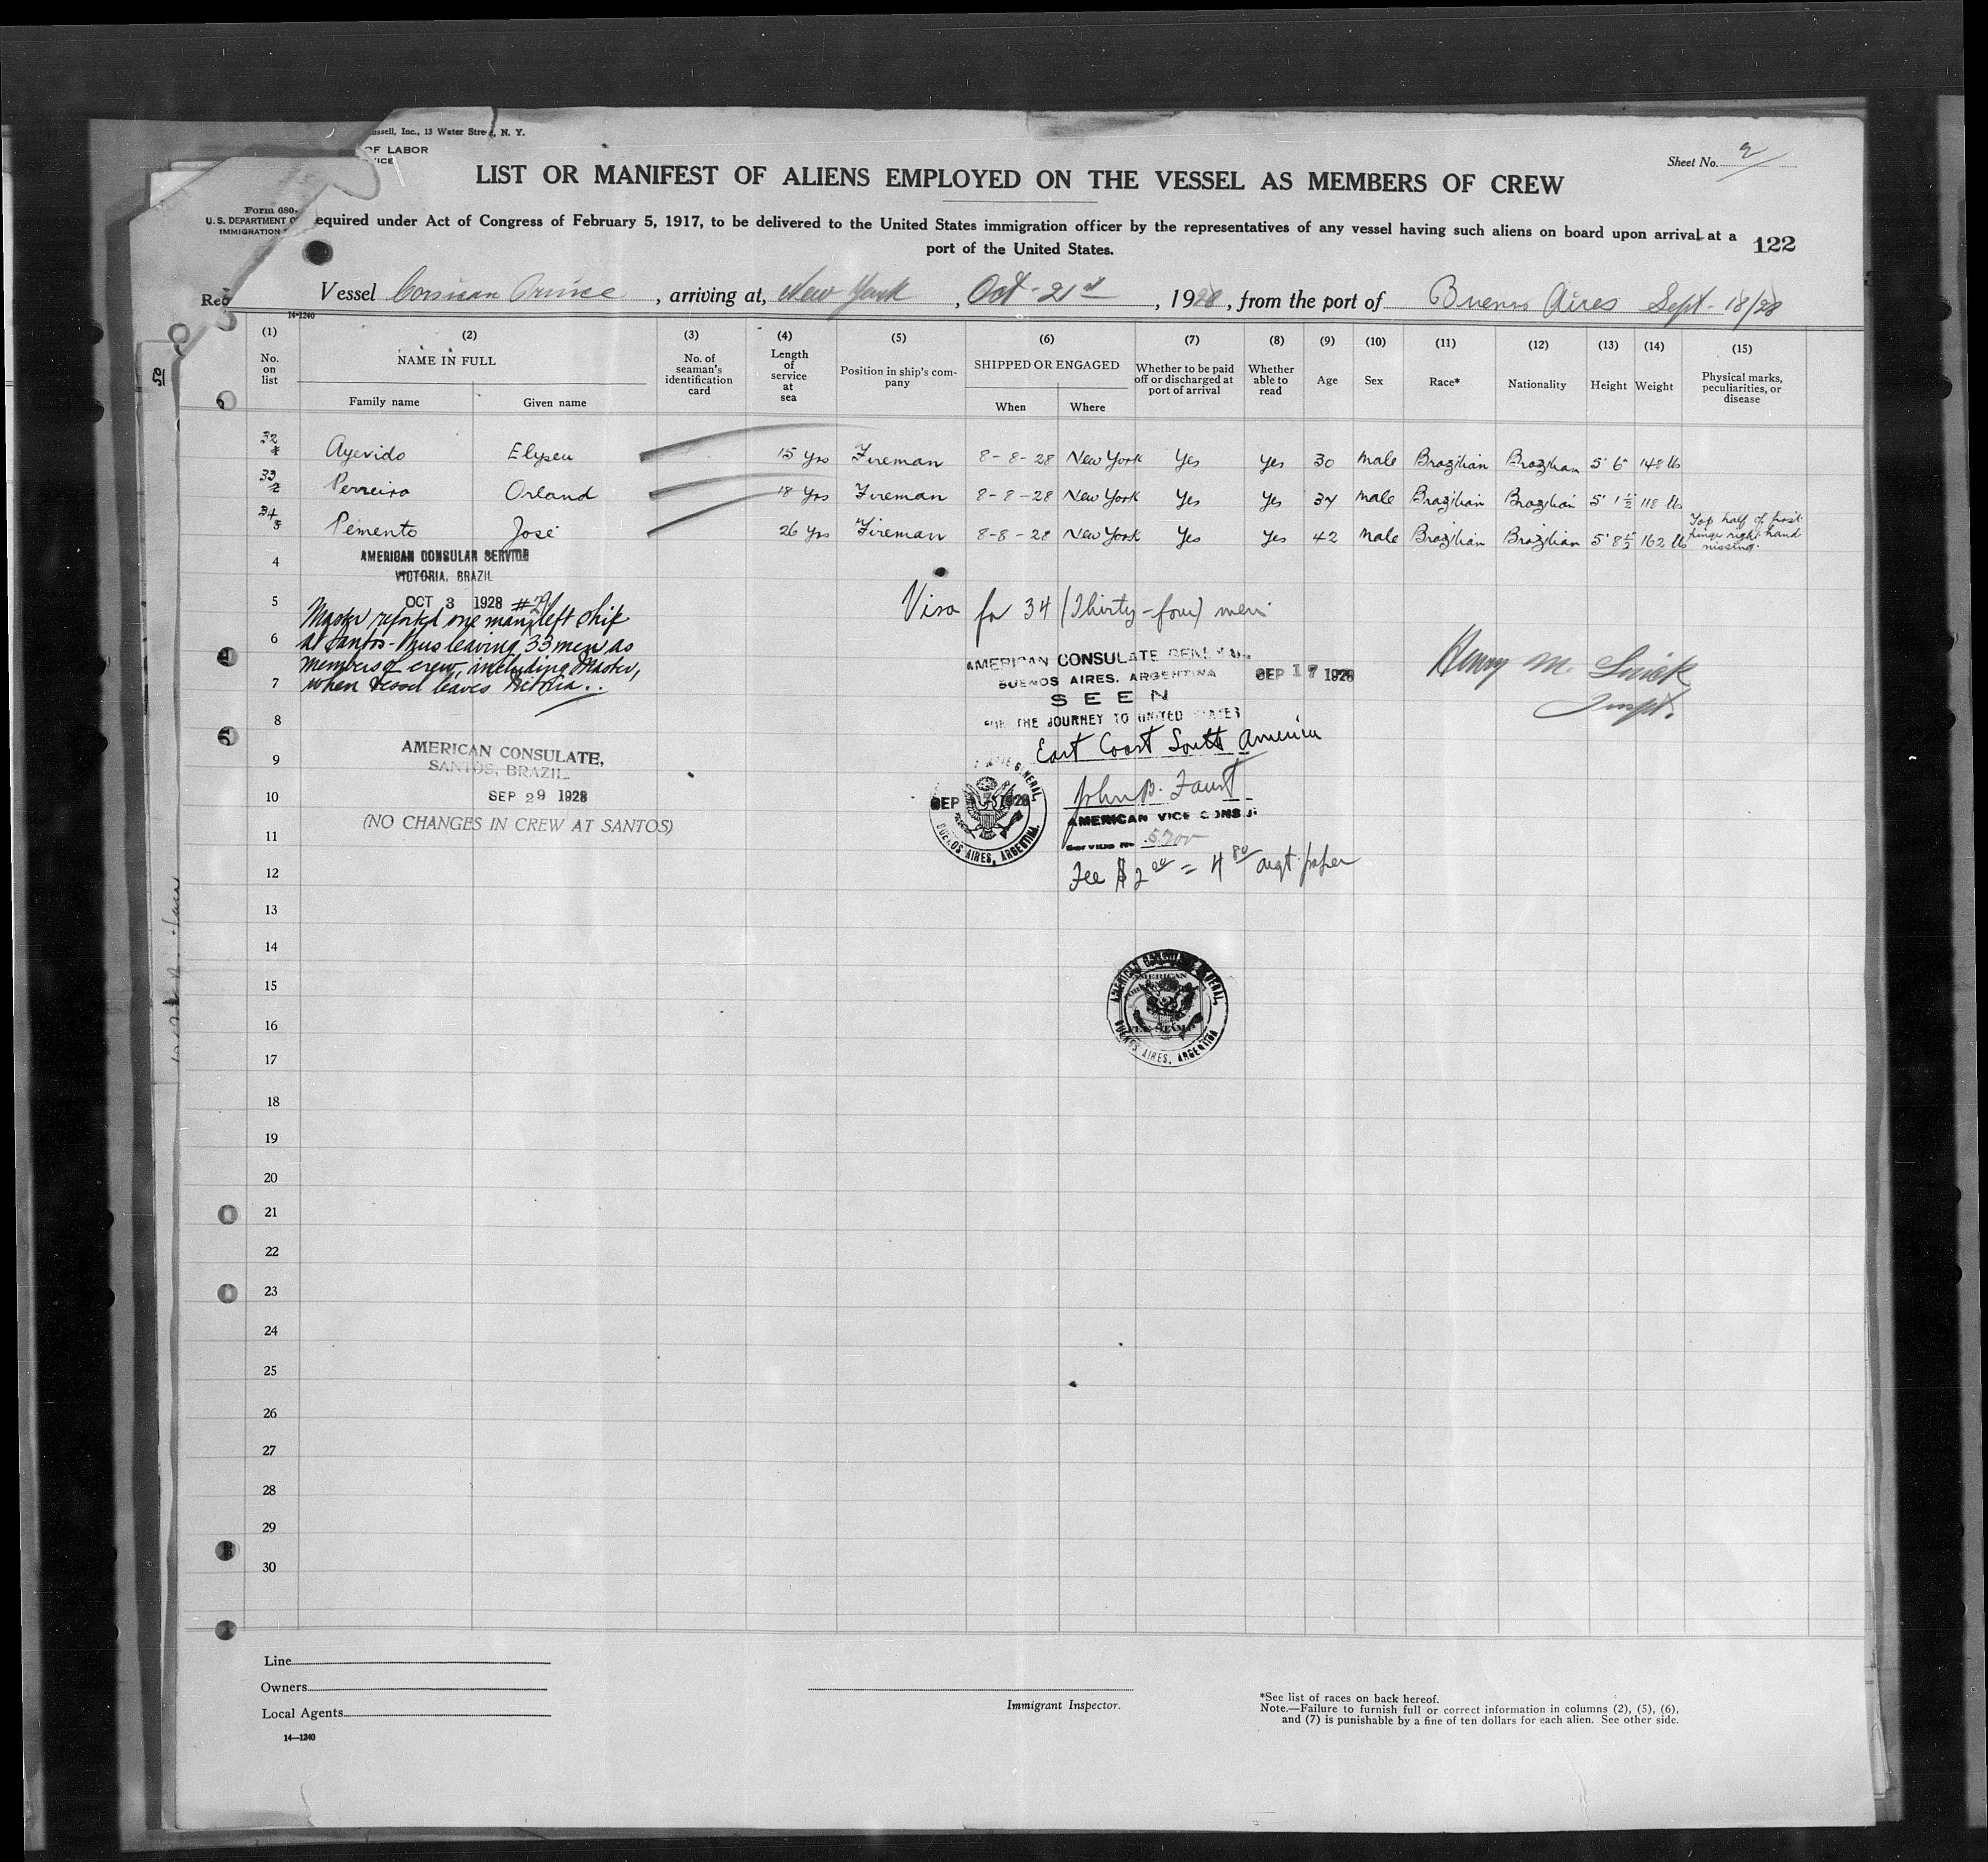 ssell, Inc., 13 Water Street, N. Y.
OF LABOR
VICE
Sheet No. 2
LIST OR MANIFEST OF ALIENS EMPLOYED ON THE VESSEL AS MEMBERS OF CREW
Form 680
U. S. DEPARTMENT O
IMMIGRATION
equired under Act of Congress of February 5, 1917, to be delivered to the United States immigration officer by the representatives of any vessel having such aliens on board upon arrival at a
port of the United States.
122
Req
Vessel Corsican Prince, arriving at, New York, Oct - 21st, 1928, from the port of Buenos Aires Sept - 18/28
14-1240
(1) (2) (3) (4) (5) (6) (7) (8) (9) (10) (11) (12) (13) (14) (15)
No. on list
NAME IN FULL
Family name Given name
No. of seaman's identification card
Length of service at sea
Position in ship's com-pany
SHIPPED OR ENGAGED
When Where
Whether to be paid off or discharged at port of arrival
Whether able to read
Age
Sex
Race*
Nationality
Height
Weight
Physical marks, peculiarities, or disease
32 Ayevido Elyseu 15 yrs Fireman 8-8-28 New York Yes Yes 30 Male Brazilian Brazilian 5' 6 148 lb
33 Perreira Orland 18 yrs Fireman 8-8-28 New York Yes Yes 34 Male Brazilian Brazilian 5' 1 1/2 118 lb
34 Pemento José 26 yrs Fireman 8-8-28 New York Yes Yes 42 Male Brazilian Brazilian 5' 8 1/2 162 lb Top half of first finger right hand missing.
4
AMERICAN CONSULAR SERVICE
VICTORIA, BRAZIL
OCT 3 1928
5
Master reported one man, left ship
6
at Santos - thus leaving 33 men as
members of crew, including Master,
7
when vessel leaves Victoria..
Visa for 34 (Thirty-four) men
AMERICAN CONSULATE GENERAL
BUENOS AIRES, ARGENTINA
SEP 17 1928
SEEN
FOR THE JOURNEY TO UNITED STATES
East Coast South America
Henry M.
Inspt.
8
9
AMERICAN CONSULATE,
SANTOS, BRAZIL.
10
SEP 29 1928
(NO CHANGES IN CREW AT SANTOS)
11
GENERAL,
SEP 1928
BUENOS AIRES, ARGENTINA.
John B. Faust
AMERICAN VICE CONSUL
Service No 5700
Fee $2.00 = 4.80 argt paper
12
13
14
AMERICAN CONSULATE GENERAL,
AMERICAN
FEE STAMP
BUENOS AIRES, ARGENTINA
15
16
17
18
19
20
21
22
23
24
25
26
27
28
29
30
Line
Owners
Local Agents
14—1240
Immigrant Inspector.
*See list of races on back hereof.
Note.—Failure to furnish full or correct information in columns (2), (5), (6),
and (7) is punishable by a fine of ten dollars for each alien. See other side.